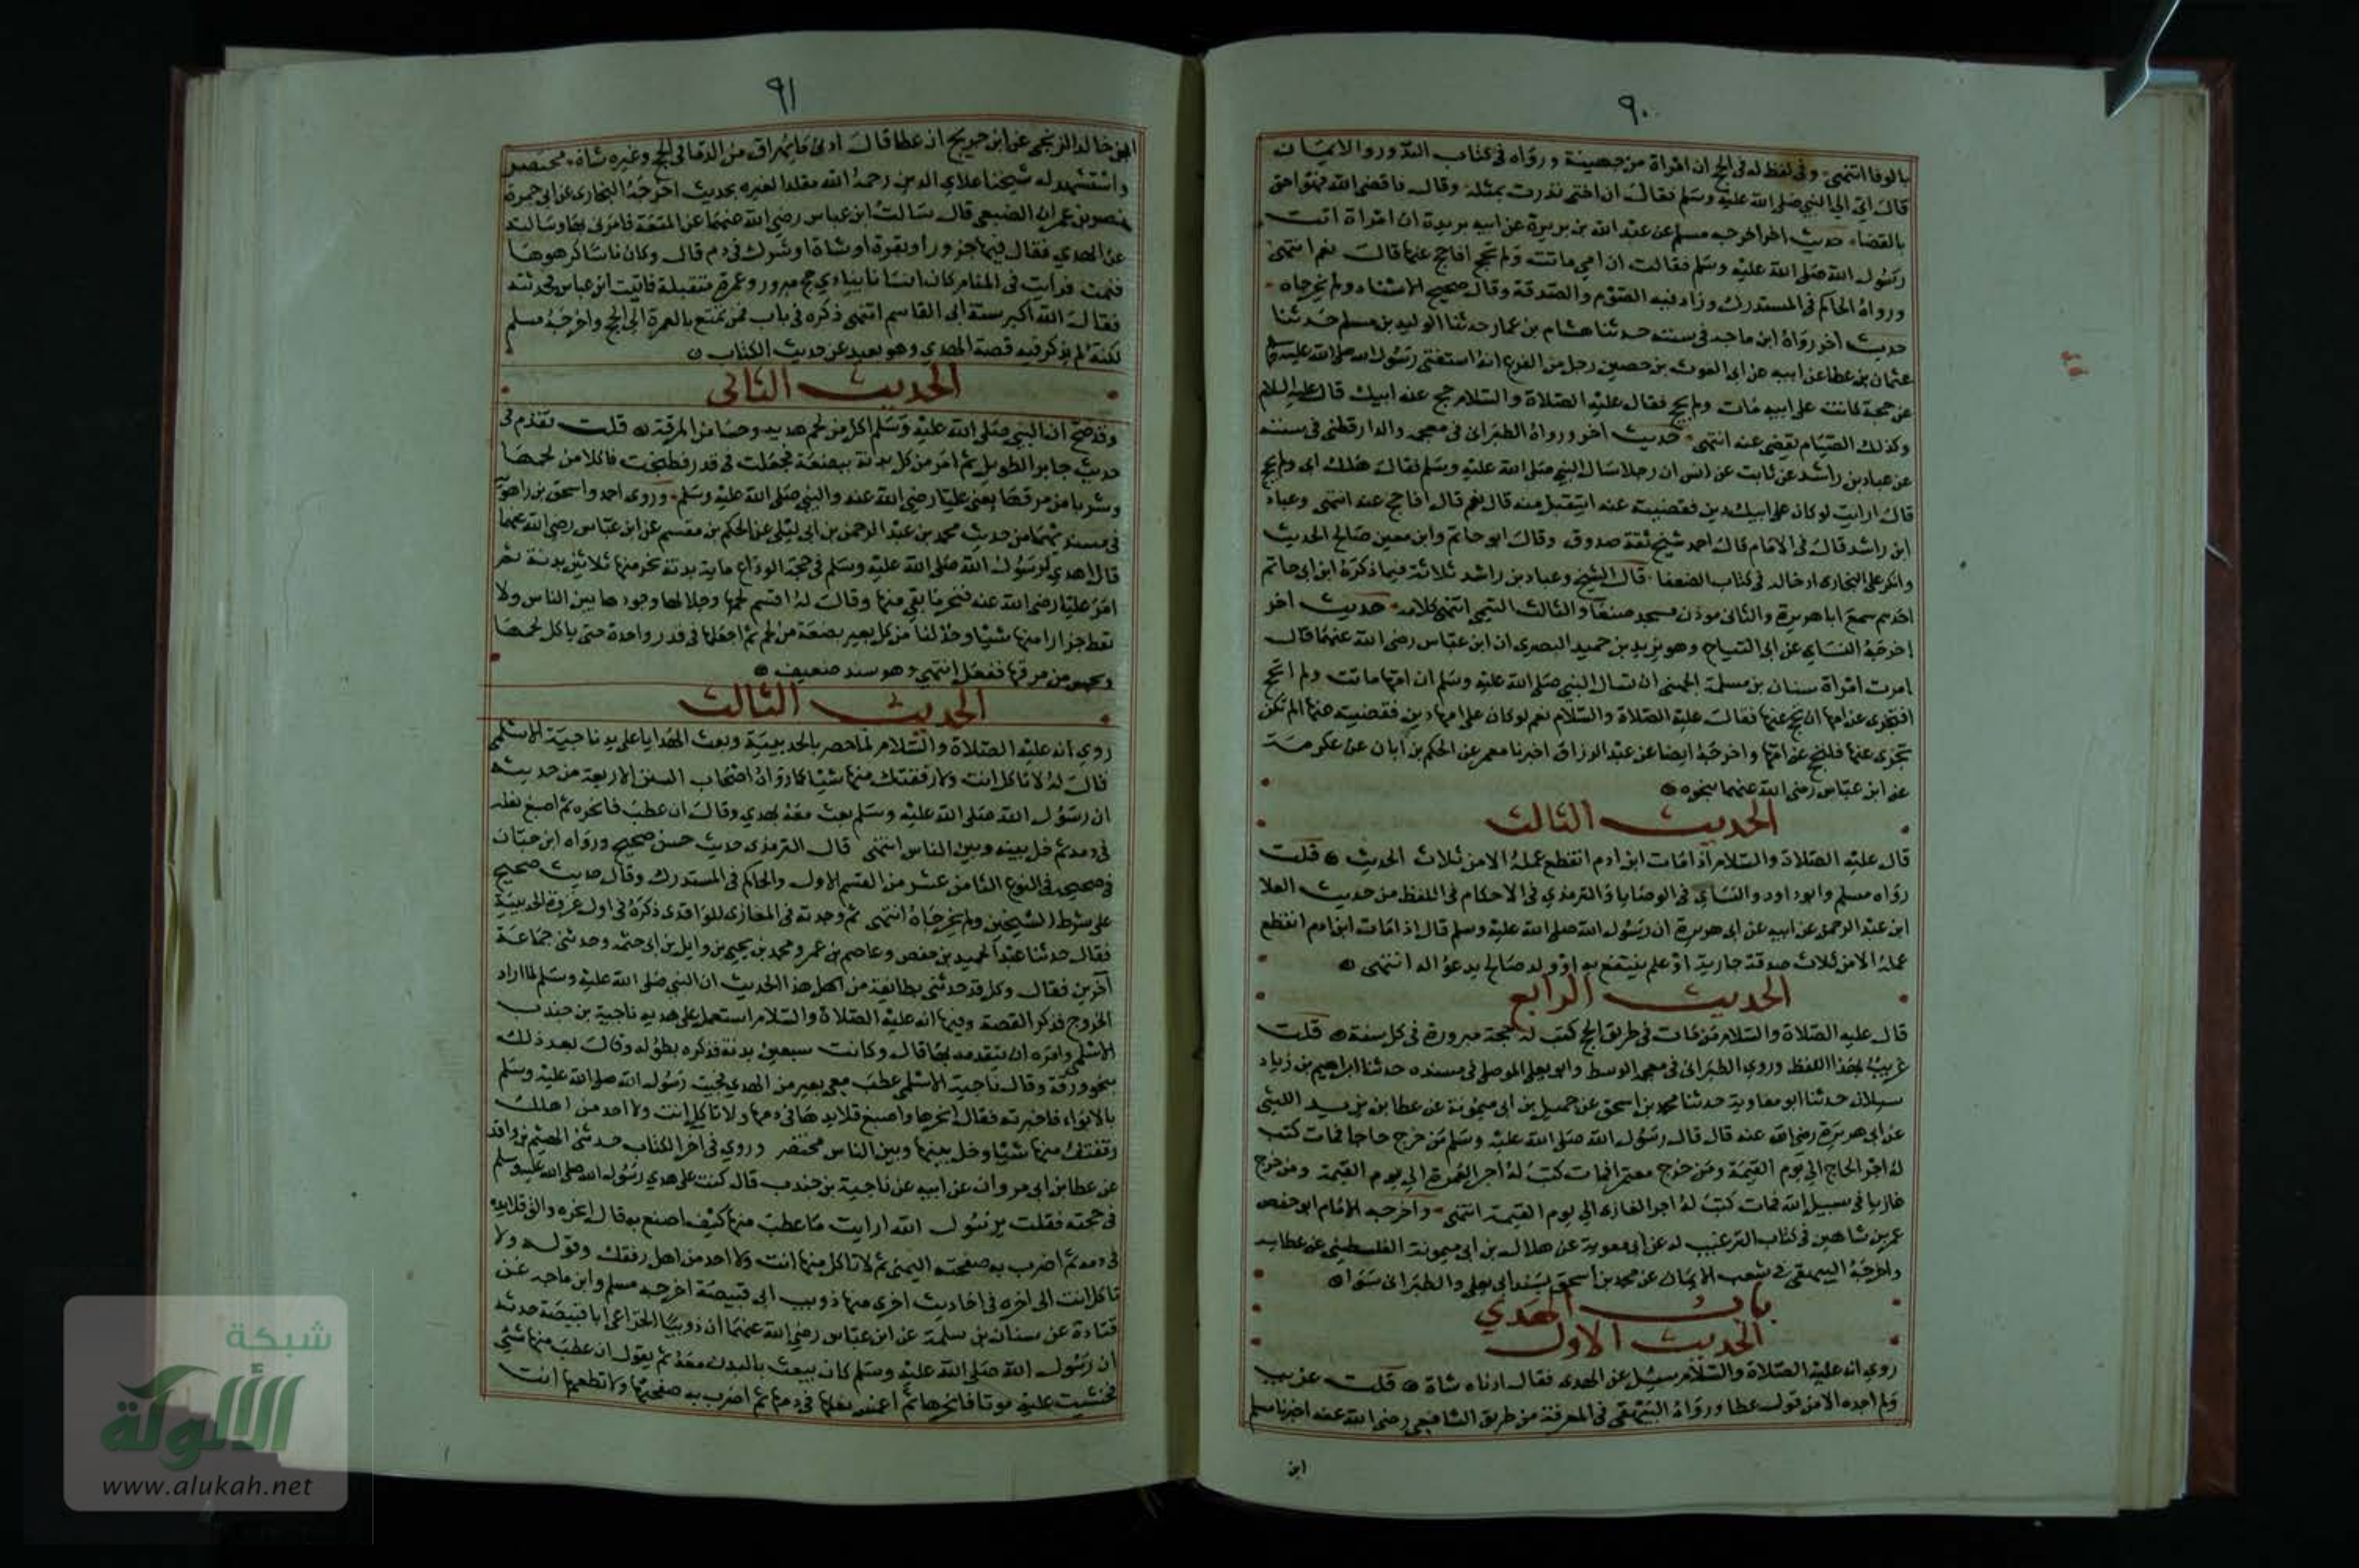 ٩٠
بالوفا انتهى وفى لفظ له فى الحج ان امراة من جهينة ورواه فى كتاب النذور والايمان
قال اتى الى النبى صلى الله عليه وسلم فقال ان اختى نذرت بمثله وقال فاقض الله فهو احق
بالقضاء حديث اخر اخرجه مسلم عن عبد الله بن بريدة عن ابيه بريدة ان امراة اتت
رسول الله صلى الله عليه وسلم فقالت ان امى ماتت ولم تحج افاحج عنها قال نعم انتهى
ورواه الحاكم فى المستدرك وزاد فيه الصوم والصدقة وقال صحيح الاسناد ولم يخرجاه
حديث اخر رواه ابن ماجه فى سننه حدثنا هشام بن عمار حدثنا الوليد بن مسلم حدثنا
عثمان بن عطا عن ابيه عن ابى الغوث بن حصين رجل من الفرع انه استفتى رسول الله صلى الله عليه وسلم
عن حجة كانت على ابيه مات ولم يحج فقال عليه الصلاة والسلام حج عن ابيك قال عليه السلام
وكذلك الصيام يقضى عنه انتهى حديث اخر ورواه الطبرانى فى معجمه والدارقطنى فى سننه
عن عباد بن راشد عن ثابت عن انس ان رجلا سال النبى صلى الله عليه وسلم فقال هلك ابى ولم يحج
قال ارايت لو كان على ابيك دين فقضيته عنه ايتقبل منه قال نعم قال فاحج عنه انتهى وعباد
ابن راشد قال فى الامام قال احمد شيخ ثقة صدوق وقال ابو حاتم وابن معين صالح الحديث
وانكر على البخارى ادخاله فى كتاب الضعفا قال الشيخ وعباد بن راشد ثلاثة فيما ذكره ابن ابى حاتم
احدهم سمع ابا هريرة والثانى موذن مسجد صنعا والثالث التيمى انتهى كلامه حديث اخر
اخرجه النساى عن ابى التياح وهو يزيد بن حميد البصرى ان ابن عباس رضى الله عنهما قال
امرت امراة سنان بن سلمة الجهنى ان تسال النبى صلى الله عليه وسلم ان امها ماتت ولم تحج
افتجزى عن امها ان تحج عنها فقال عليه الصلاة والسلام نعم لو كان على امها دين فقضيته عنها الم تكن
تجزى عنها فلتحج عن امها واخرجه ايضا عن عبد الرزاق اخبرنا معمر عن الحكم بن ابان عن عكرمة
عن ابن عباس رضى الله عنهما بنحوه
الحديث الثالث
قال عليه الصلاة والسلام اذا مات ابن ادم انقطع عمله الا من ثلاث الحديث قلت
رواه مسلم وابو داود والنساى فى الوصايا والترمذى فى الاحكام فى اللفظ من حديث العلا
ابن عبد الرحمن عن ابيه عن ابى هريرة ان رسول الله صلى الله عليه وسلم قال اذا مات ابن ادم انقطع
عمله الا من ثلاث صدقة جارية او علم ينتفع به او ولد صالح يدعو له انتهى
الحديث الرابع
قال عليه الصلاة والسلام من مات فى طريق الحج كتب له حجة مبرورة فى كل سنة قلت
غريب بهذا اللفظ وروى الطبرانى فى معجمه الوسط وابو يعلى الموصلى فى مسنده حدثنا ابراهيم بن زياد
سبلان حدثنا ابو معاوية حدثنا محمد بن اسحق عن جميل بن ابى ميمونة عن عطا بن يزيد الليثى
عن ابى هريرة رضى الله عنه قال قال رسول الله صلى الله عليه وسلم من خرج حاجا فمات كتب
له اجر الحاج الى يوم القيمة ومن خرج معتمرا فمات كتب له اجر العمرة الى يوم القيمة ومن خرج
غازيا فى سبيل الله فمات كتب له اجر الغازى الى يوم القيمة انتهى واخرجه الامام ابو حفص
عمر بن شاهين فى كتاب الترغيب له عن ابى معوية عن هلال بن ابى ميمونة الفلسطينى عن عطا به
واخرجه البيهقى فى شعب الايمان عن محمد بن اسحق بسند ابى يعلى والطبرانى سوا
باب الهدي
الحديث الاول
روي انه عليه الصلاة والسلام سيل عن الهدى فقال ادناه شاة قلت غريب
ولم اجده الا من قول عطا ورواه البيهقى فى المعرفة من طريق الشافعى رضى الله عنه اخبرنا مسلم
ابن
٩١
ابن خالد الزنجى عن ابن جريج ان عطا قال ادنى ما يهراق من الدما فى الحج وغيره شاة مختصر
واستشهد له شيخنا علاى الدين رحمه الله مقلدا لغيره بحديث اخرجه البخارى عن ابى جمرة
نصر بن عمران الضبعى قال سالت ابن عباس رضى الله عنهما عن المتعة فامرنى بها وسالته
عن الهدي فقال فيها جزور او بقرة او شاة او شرك فى دم قال وكان ناسا كرهوها
فنمت فرايت فى المنام كان انسانا ينادي حج مبرور وعمرة متقبلة فاتيت ابن عباس فحدثته
فقال الله اكبر سنة ابى القاسم انتهى ذكره فى باب فمن تمتع بالعمرة الى الحج واخرجه مسلم
لكنه لم يذكر فيه قصة الهدي وهو بعيد عن حديث الكتاب
الحديث الثانى
وقد صح ان النبى صلى الله عليه وسلم اكل من لحم هديه وحسا من المرقة قلت تقدم فى
حديث جابر الطويل ثم امر من كل بدنة ببضعة فجعلت فى قدر فطبخت فاكلا من لحمها
وشربا من مرقها يعنى عليا رضى الله عنه والنبى صلى الله عليه وسلم وروى احمد واسحق بن راهويه
فى مسنديهما من حديث محمد بن عبد الرحمن بن ابى ليلى عن الحكم بن مقسم عن ابن عباس رضى الله عنهما
قال اهدى رسول الله صلى الله عليه وسلم فى حجة الوداع ماية بدنة نحر منها ثلاثين بدنة ثم
امر عليا رضى الله عنه فنحر ما بقى منها وقال له اقسم لحمها وجلالها وجلودها بين الناس ولا
تعط جزارا منها شيا وخذ لنا من كل بعير بضعة من لحم ثم اجعلها فى قدر واحدة حتى ياكل لحمها
ويحسو من مرقها ففعل انتهى وهو سند ضعيف
الحديث الثالث
روي انه عليه الصلاة والسلام لما حصر بالحديبية وبعث الهدايا على يد ناجية الاسلمى
قال له لا تاكل انت ولا رفقتك منها شيا رواه اصحاب السنن الاربعة من حديثه
ان رسول الله صلى الله عليه وسلم بعث معه بهدي وقال ان عطب فانحره ثم اصبغ نعله
فى دمه ثم خل بينه وبين الناس انتهى قال الترمذى حديث حسن صحيح ورواه ابن حبان
فى صحيحه فى النوع الثامن عشر من القسم الاول والحاكم فى المستدرك وقال حديث صحيح
على شرط الشيخين ولم يخرجاه انتهى ثم وجدته فى المغازى للواقدى ذكره فى اول غزوة الحديبية
فقال حدثنا عبد الحميد بن جعفر وعاصم بن عمر ومحمد بن يحيى بن وايل بن ابى حثمة وحدثنى جماعة
آخرين فقال وكل قد حدثنى بطائفة من اهل هذا الحديث ان النبى صلى الله عليه وسلم لما اراد
الخروج فذكر القصة وفيها انه عليه الصلاة والسلام استعمل على هديه ناجية بن جندب
الاسلمى وامره ان يتقدمه بها قال وكانت سبعين بدنة فذكره بطوله وقال بعد ذلك
بنحو ورقة وقال ناجية الاسلمى عطب معى بعير من الهدي فجيت رسول الله صلى الله عليه وسلم
بالابواء فاخبرته فقال انحرها واصبغ قلايدها فى دمها ولا تاكل انت ولا احد من اهل
رفقتك منها شيا وخل بينها وبين الناس مختصر وروي فى اخر الكتاب حدثنى الهيثم بن واقد
عن عطا بن ابى مروان عن ابيه عن ناجية بن جندب قال كنت على هدي رسول الله صلى الله عليه وسلم
فى حجته فقلت يرسول الله ارايت ما عطب منها كيف اصنع به قال انحره والق قلايده
فى دمه ثم اضرب به صفحته اليمنى ثم لا تاكل منها انت ولا احد من اهل رفقتك وقوله ولا
تاكل انت الى اخره فى احاديث اخرى منها ذويب ابى قبيصة اخرجه مسلم وابن ماجه عن
قتادة عن سنان بن سلمة عن ابن عباس رضى الله عنهما ان ذويبا الخزاعى ابا قبيصة حدثه
ان رسول الله صلى الله عليه وسلم كان يبعث بالبدن معه ثم يقول ان عطب منها شى
فخشيت عليه موتا فانحرها ثم اغمس نعلها فى دمها ثم اضرب به صفحتها ولا تطعمها انت
شبكة
الألوكة
www.alukah.net